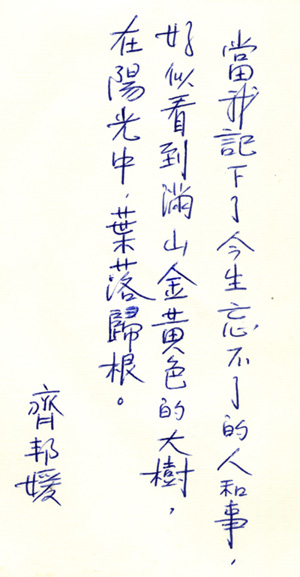 當我記下了今生忘不了的人和事，
好似看到滿山金黃色的大樹，
在陽光中，葉落歸根。
齊邦媛